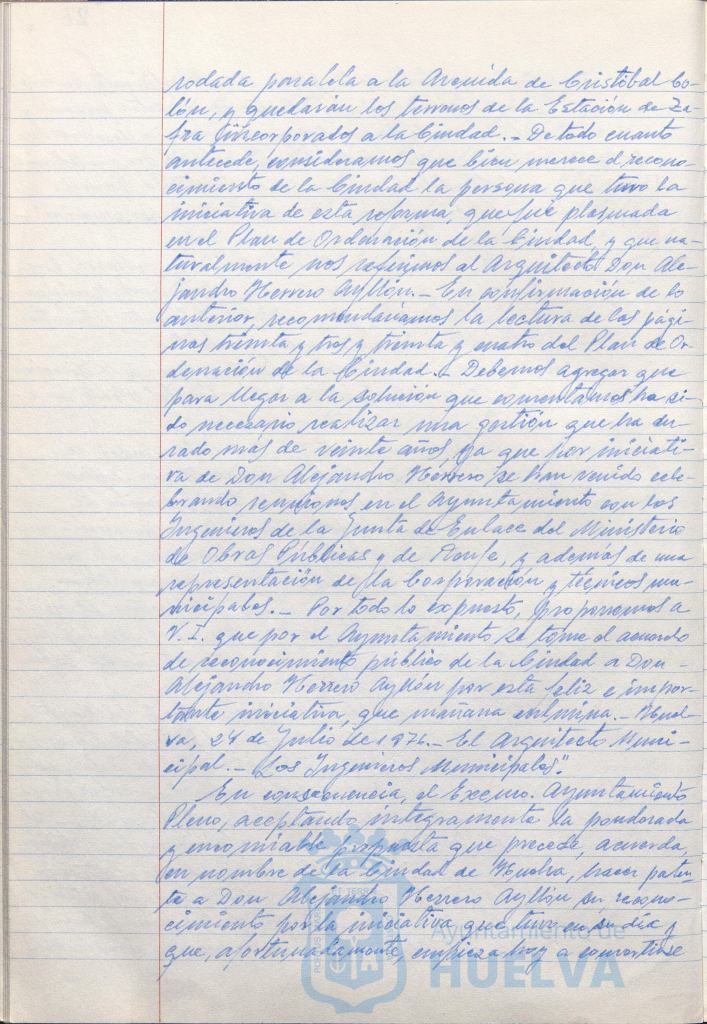 rodada paralela a la Avenida de Cristóbal Co-
lón, y quedarán los terrenos de la Estación de Za-
fra incorporados a la Ciudad.- De todo cuanto
antecede, consideramos que bien merece el recono-
cimiento de la Ciudad la persona que tuvo la
iniciativa de esta reforma, que fue plasmada
en el Plan de Ordenación de la Ciudad, y que na-
turalmente nos referimos al Arquitecto Don Ale-
jandro Herrero Ayllón.- En confirmación de lo
anterior, recomendaríamos la lectura de las pági-
nas treinta y tres y treinta y cuatro del Plan de Or-
denación de la Ciudad.- Debemos agregar que
para llegar a la solución que comentamos ha si-
do necesario realizar una gestión que ha du-
rado más de veinte años, ya que por iniciati-
va de Don Alejandro Herrero se han venido cele-
brando reuniones en el Ayuntamiento con los
Ingenieros de la Junta de Enlace del Ministerio
de Obras Públicas y de Renfe, y además de una
representación de la Corporación y técnicos mu-
nicipales.- Por todo lo expuesto, proponemos a
V.I. que por el Ayuntamiento se tome el acuerdo
de reconocimiento público de la Ciudad a Don
Alejandro Herrero Ayllón por esta feliz e impor-
tante iniciativa, que mañana culmina.- Huel-
va, 24 de Julio de 1976.- El Arquitecto Muni-
cipal.- Los Ingenieros Municipales".
En consecuencia, el Excmo. Ayuntamiento
Pleno, aceptando íntegramente la ponderada
y encomiable propuesta que precede, acuerda,
en nombre de la Ciudad de Huelva, hacer paten-
te a Don Alejandro Herrero Ayllón su recono-
cimiento por la iniciativa que tuvo en su día y
que, afortunadamente, empieza hoy a convertirse
Ayuntamiento de
HUELVA